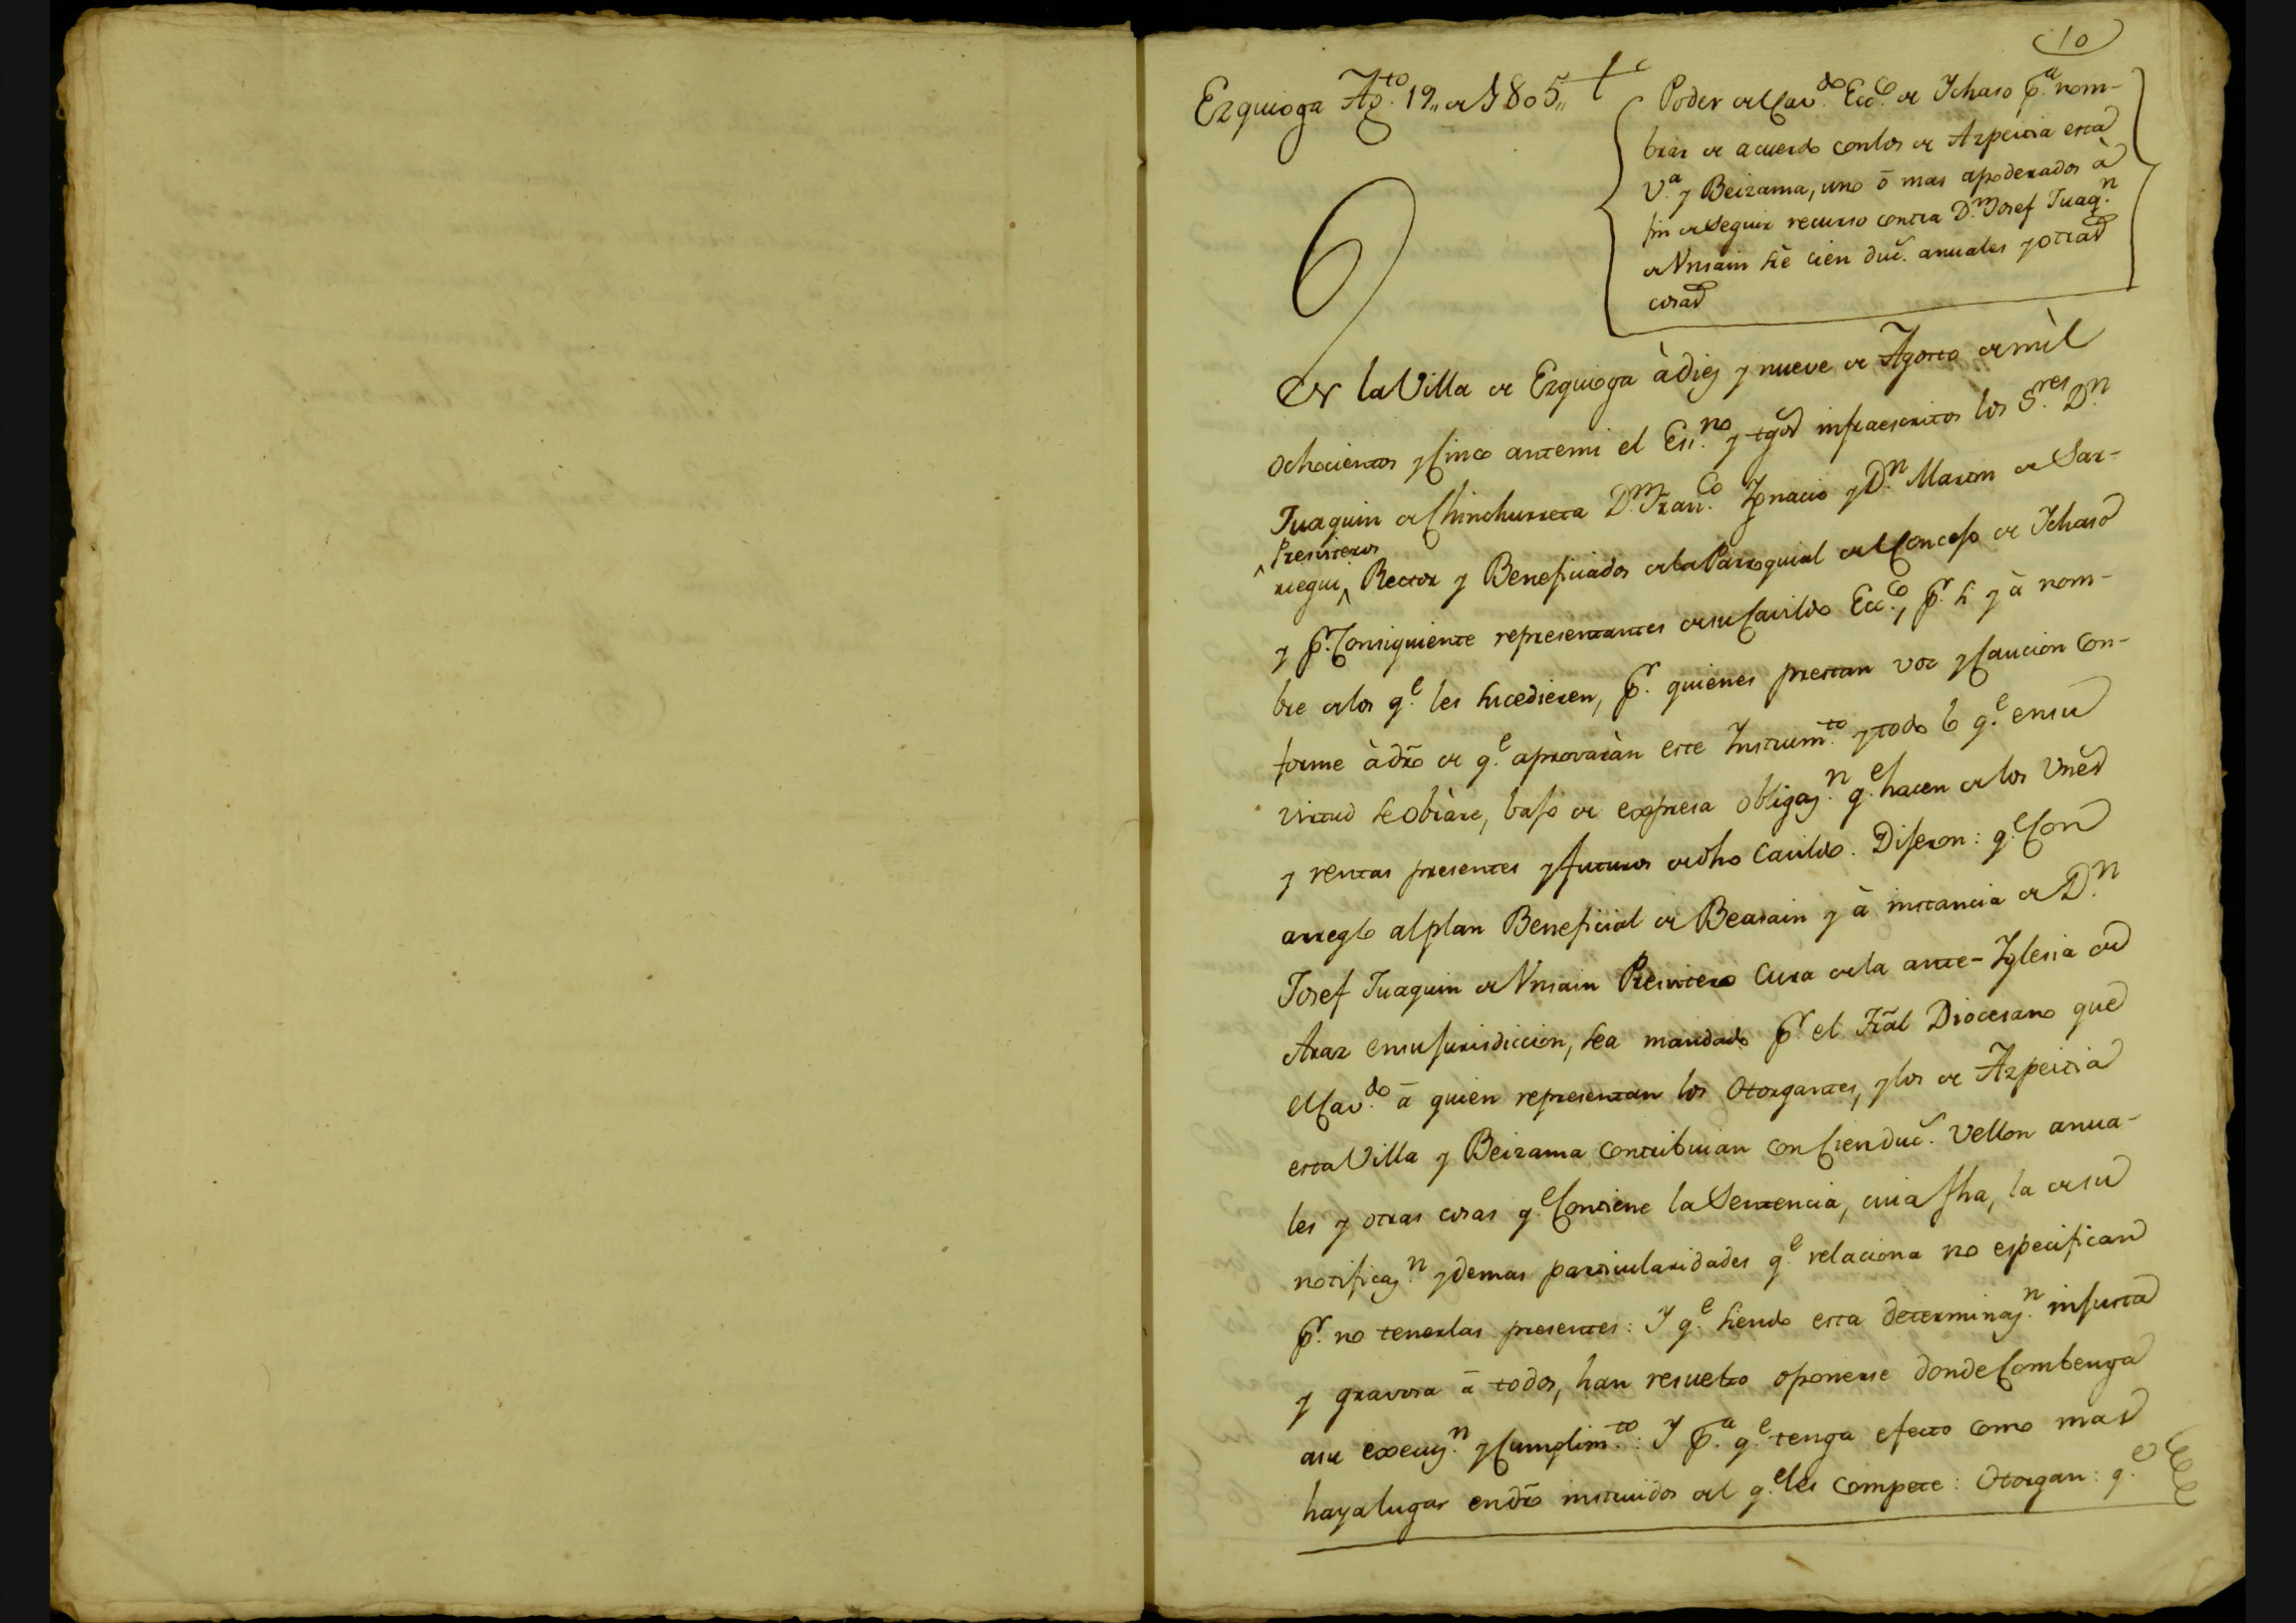 10
Ezquioga Ag.to 19,, de 1805,,
Poder del Cav.do Ecc.o de Ichaso p.a nom-
brar de acuerdo con los de Azpeitia esta
V.a y Beizama, uno ò mas apoderados à
fin de seguir recurso contra D.n Josef Juaq.n
de Unsain sre cien duc.s anuales y otras
cosas
En la Villa de Ezquioga à diez y nueve de Agosto de mìl
ochocientos y Cinco ante mi el Ess.no y tgos infraescritos los S.res D.n
Juaquin de Chinchurreta D.n Fran.co Ignacio y D.n Martin de Sar-
Presviteros
riegui, Rector y Beneficiados de la Parroquial del Concejo de Ichaso
y p.r Consiguiente representantes de su Cavildo Ecc.o, p.r si y à nom-
bre de los q.e les sucedieren, p.r quienes prestan voz y Caucion Con-
forme à dro de q.e aprovaràn este Instrum.to y todo lo q.e en su
virtud se obràre, bajo de expresa obligaz.n q.e hacen de los vnes
y rentas presentes y futuros de dho Cavildo. Dijeron: q.e Con
arreglo al plan Beneficial de Beasain y à instancia de D.n
Josef Juaquin de Unsain Presvitero Cura de la ante-Iglesia de
Araz en su jurisdiccion, sea mandado p.r el Tral Diocesano que
el Cav.do à quien representan los Otorgantes, y los de Azpeitia
esta Villa y Beizama Contribuian con Cien duc.s Vellon anua-
les y otras cosas q.e Contiene la Sentencia, cuia fha, la de su
notificaz.n y demas particularidades q.e relaciona no especifican
p.r no tenerlas presentes: Y q.e siendo esta determinaz.n injusta
y gravosa à todos, han resuelto oponerse donde Combenga
asu execuz.n y Cumplim.to: Y p.a q.e tenga efecto como mas
haya lugar en dro instruidos del q.e les compete: Otorgan: q.e